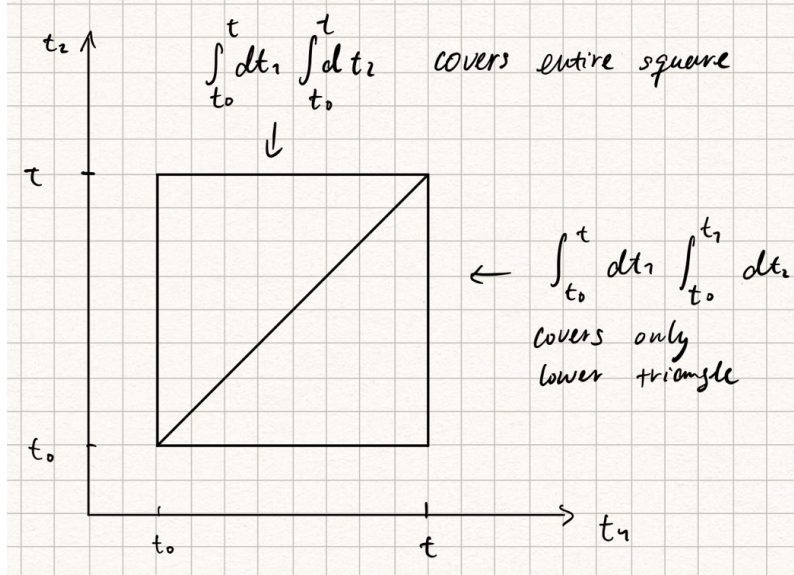 t₂
∫_{t₀}^{t} dt₁ ∫_{t₀}^{t} dt₂ covers entire square
↓
t
← ∫_{t₀}^{t} dt₁ ∫_{t₀}^{t₁} dt₂
covers only
lower triangle
t₀
t₁
t₀ t